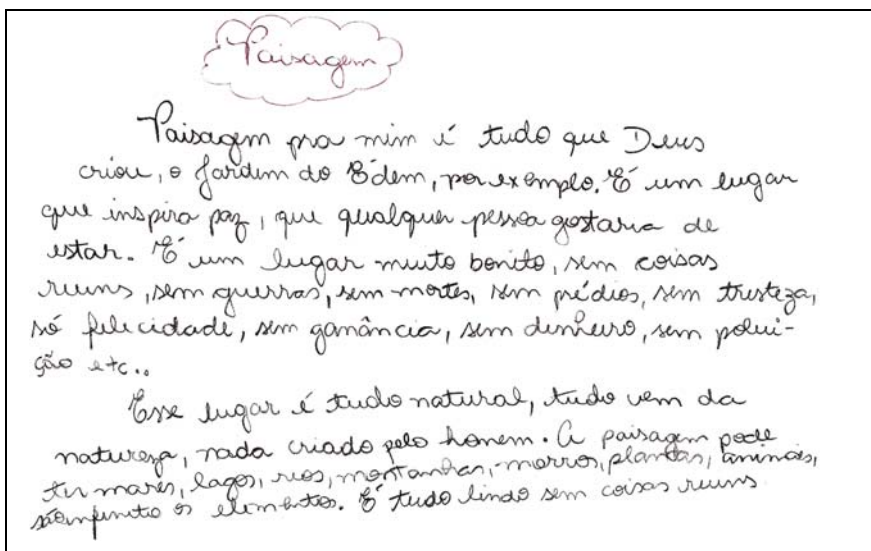 Paisagem
Paisagem pra mim é tudo que Deus
criou, o Jardim do Édem, por exemplo. É um lugar
que inspira paz, que qualquer pessoa gostaria de
estar. É um lugar muito bonito, sem coisas
ruins, sem guerras, sem mortes, sem prédios, sem tristeza,
só felicidade, sem ganância, sem dinheiro, sem polui-
ção etc..
Esse lugar é tudo natural, tudo vem da
natureza, nada criado pelo homem. A paisagem pode
ter mares, lagos, rios, montanhas, morros, plantas, animais,
são infinito os elementos. É tudo lindo sem coisas ruins